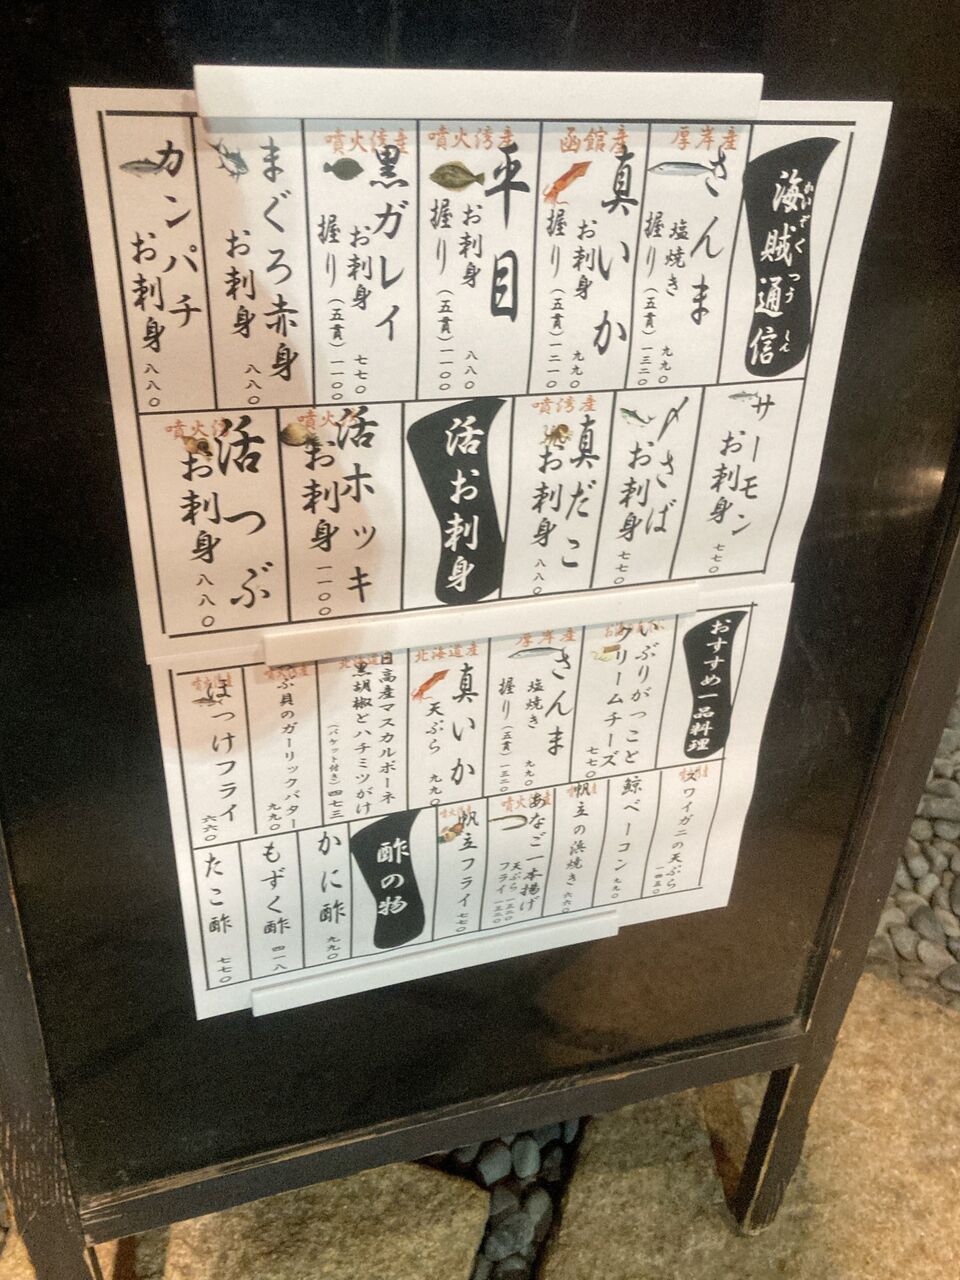 海賊通信
かいぞくつうしん
厚岸産
さんま
塩焼き 九九〇
握り(五貫)一三二〇
函館産
真いか
お刺身 九九〇
握り(五貫)一二一〇
噴火湾産
平目
お刺身 八八〇
握り(五貫)一一〇〇
噴火湾産
黒ガレイ
お刺身 七七〇
握り(五貫)一一〇〇
まぐろ赤身
お刺身 八八〇
カンパチ
お刺身 八八〇
サーモン
お刺身 七七〇
〆さば
お刺身 七七〇
噴湾産
真だこ
お刺身 八八〇
活お刺身
噴火湾
活ホッキ
お刺身 一一〇〇
噴火湾
活つぶ
お刺身 八八〇
おすすめ一品料理
いぶりがっこと
クリームチーズ 七七〇
厚岸産
さんま
塩焼き 九九〇
握り(五貫)一三二〇
北海道産
真いか
天ぷら 九九〇
北海道
日高産マスカルポーネ
黒胡椒とハチミツがけ
(バケット付き)四七三
つぶ貝のガーリックバター 九九〇
ほっけフライ 六六〇
ズワイガニの天ぷら 一四五〇
鯨ベーコン 九九〇
帆立の浜焼き 六六〇
噴火湾産
あなご一本揚げ
天ぷら 一三二〇
フライ 一三二〇
帆立フライ 七七〇
酢の物
かに酢 九九〇
もずく酢 四一八
たこ酢 七七〇